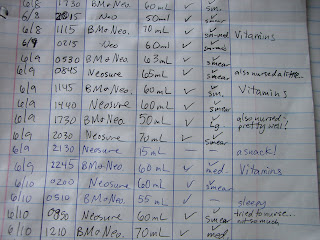 6/8 1730 BM+Neo. 60mL ✓ sm.
6/8 2015 Neo 50ml ✓ smear
6/8 1115 BM+Neo. 70mL ✓ sm-med Vitamins
6/9 0215 Neo 60ml ✓ sm-med
6/9 0530 BM+Neo. 63mL ✓ smear
6/9 0845 Neosure 65mL ✓ smear also nursed a little...
6/9 1145 BM+Neo. 60mL ✓ sm. Vitamins
6/9 1440 Neosure 60mL ✓ smear
6/9 1730 BM+Neo. 50mL ✓ Lg. also nursed - pretty well!
6/9 2030 Neosure 70mL ✓ smear
6/9 2130 Neosure 15mL — — a snack!
6/9 2245 BM+Neo. 60mL ✓ med. Vitamins
6/10 0200 Neosure 60mL ✓ smear
6/10 0510 BM+Neo. 55mL ✓ — sleepy
6/10 0950 Neosure 60mL ✓ smear tried to nurse... not so much
6/10 1210 BM+Neo. 70mL ✓ med